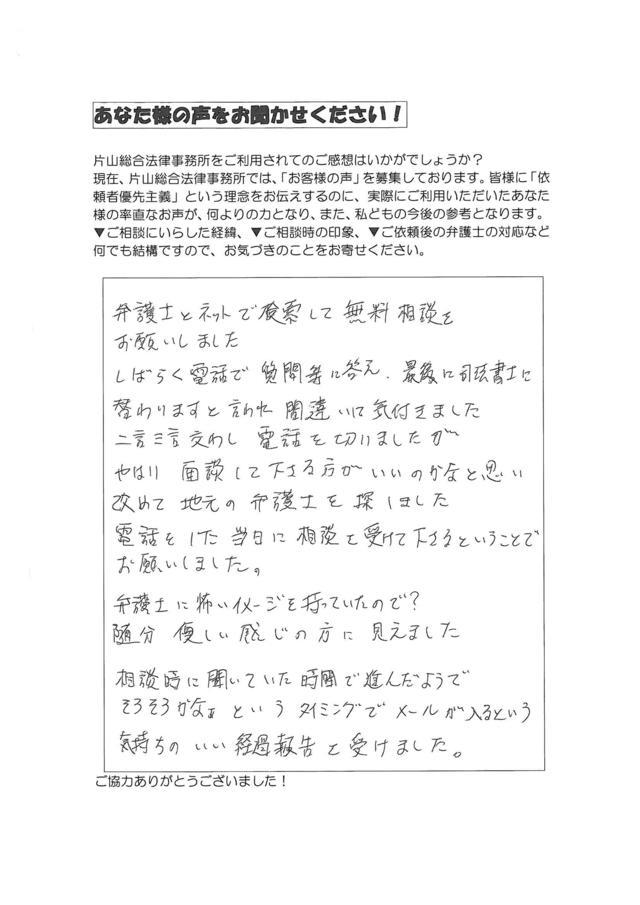 あなた様の声をお聞かせください！
片山総合法律事務所をご利用されてのご感想はいかがでしょうか？
現在、片山総合法律事務所では、「お客様の声」を募集しております。皆様に「依
頼者優先主義」という理念をお伝えするのに、実際にご利用いただいたあなた
様の率直なお声が、何よりの力となり、また、私どもの今後の参考となります。
▼ご相談にいらした経緯、▼ご相談時の印象、▼ご依頼後の弁護士の対応など
何でも結構ですので、お気づきのことをお寄せください。
弁護士とネットで検索して無料相談を
お願いしました
しばらく電話で質問等に答え、最後に司法書士に
替わりますと言われ間違いに気付きました
二言三言交わし電話を切りましたが
やはり面談して下さる方がいいのかなと思い
改めて地元の弁護士を探しました
電話をした当日に相談を受けて下さるということで
お願いしました。
弁護士に怖いイメージを持っていたので？
随分優しい感じの方に見えました
相談時に聞いていた時間で進んだようで
そろそろかなぁというタイミングでメールが入るという
気持ちのいい経過報告を受けました。
ご協力ありがとうございました！